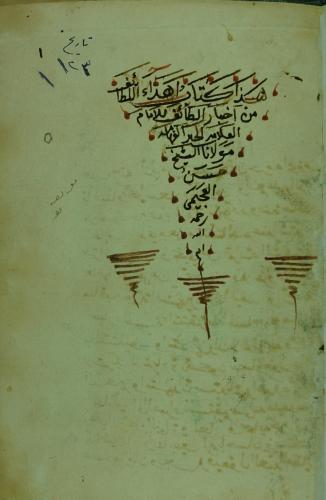 تاريخ
١١٢٣
١
هذا كتاب اهداء اللطائف
من اخبار الطائف للامام
العلامه الحبر الفهامه
مولانا الشيخ
حسن
العجيمى
رحمه
الله
ام